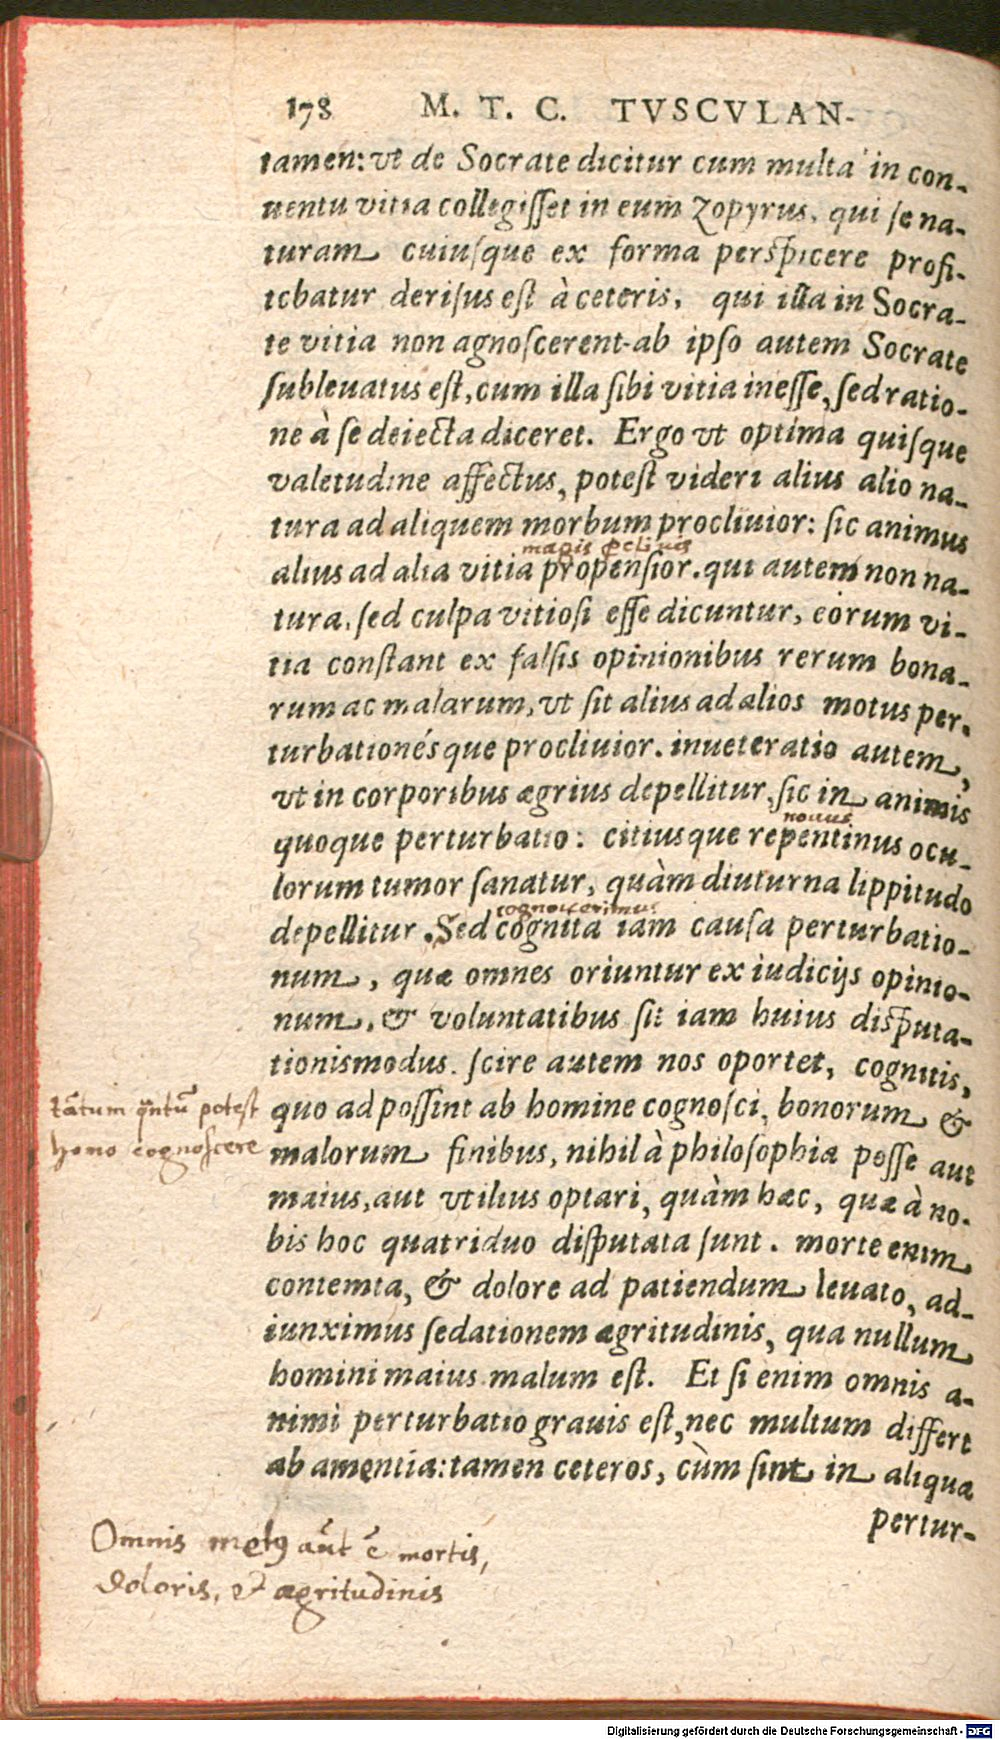 178 M. T. C. TVSCVLAN-
tamen: vt de Socrate dicitur cum multa in con-
uentu vitia collegisset in eum Zopyrus, qui se na-
turam cuiusque ex forma perspicere profi-
tebatur derisus est à ceteris, qui illa in Socra-
te vitia non agnoscerent. ab ipso autem Socrate
subleuatus est, cum illa sibi vitia inesse, sed ratio-
ne à se deiecta diceret. Ergo vt optima quisque
valetudine affectus, potest videri alius alio na-
tura ad aliquem morbum procliuior: sic animus
magis ꝓcliuis
alius ad alia vitia propensior. qui autem non na-
tura, sed culpa vitiosi esse dicuntur, eorum vi-
tia constant ex falsis opinionibus rerum bona-
rum ac malarum, vt sit alius ad alios motus per-
turbationésque procliuior. inueteratio autem,
vt in corporibus ægrius depellitur, sic in animis
quoque perturbatio: citiusque repentinus ocu-
nouus
lorum tumor sanatur, quàm diuturna lippitudo
cognouerimus
depellitur. Sed cognita iam causa perturbatio-
num, quæ omnes oriuntur ex iudicijs opinio-
num, & voluntatibus sit iam huius disputa-
tionis modus. scire autem nos oportet, cognitis,
quo ad possint ab homine cognosci, bonorum &
malorum finibus, nihil à philosophia posse aut
maius, aut vtilius optari, quàm hæc, quæ à no-
bis hoc quatriduo disputata sunt. morte enim
contemta, & dolore ad patiendum leuato, ad-
iunximus sedationem ægritudinis, qua nullum
homini maius malum est. Et si enim omnis a-
nimi perturbatio grauis est, nec multum differt
ab amentia: tamen ceteros, cùm sint in aliqua
pertur-
tātum qntū potest
homo cognoscere
Omnis metꝰ aūt ē mortis,
doloris, & ægritudinis
Digitalisierung gefördert durch die Deutsche Forschungsgemeinschaft - DFG